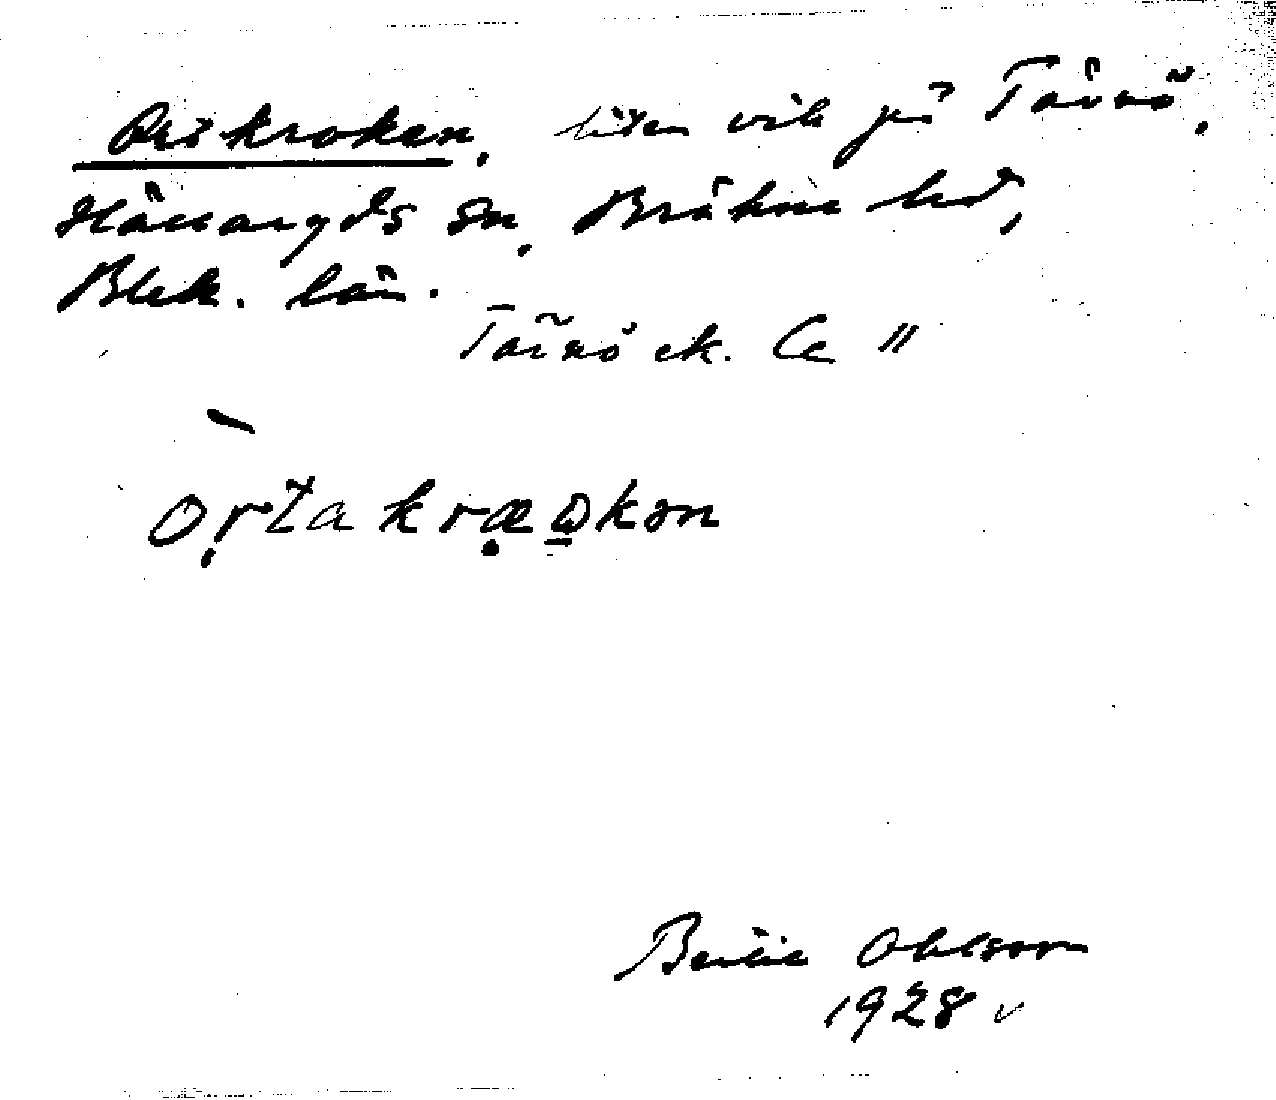 Örtakroken, liten vik på Tärnö,
Hällaryds sn, Bräkne hd,
Blek. län.
Tärnö ek. Ce "
ortakræɷkən
Bertil Ohlsson
1928